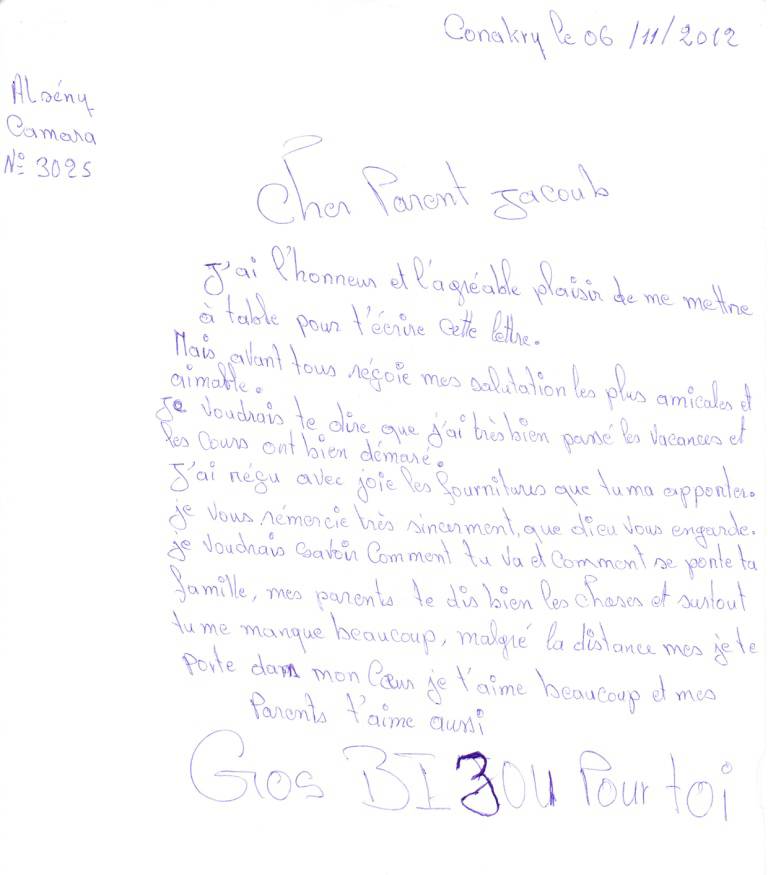 Conakry le 06/11/2012
Alseny
Camara
N° 3025
Cher Parent Jacoub
J'ai l'honneur et l'agréable plaisir de me mettre
à table pour t'écrire cette lettre.
Mais avant tous réçoie mes salutation les plus amicales et
aimable.
Je voudrais te dire que j'ai très bien passé les vacances et
les Cours ont bien démaré.
J'ai réçu avec joie les fournitures que tu ma apporter.
je vous rémercie très sincerment, que dieu vous engarde.
je voudrais savoir Comment tu va et comment se porte ta
famille, mes parents te dis bien les choses et surtout
tu me manque beaucoup, malgré la distance mes je te
Porte dans mon Cœur je t'aime beaucoup et mes
Parents t'aime aussi
Gros BIZOU Pour toi